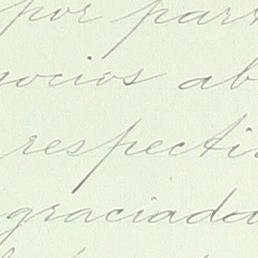 por part
socios ab
respectiv
graciada